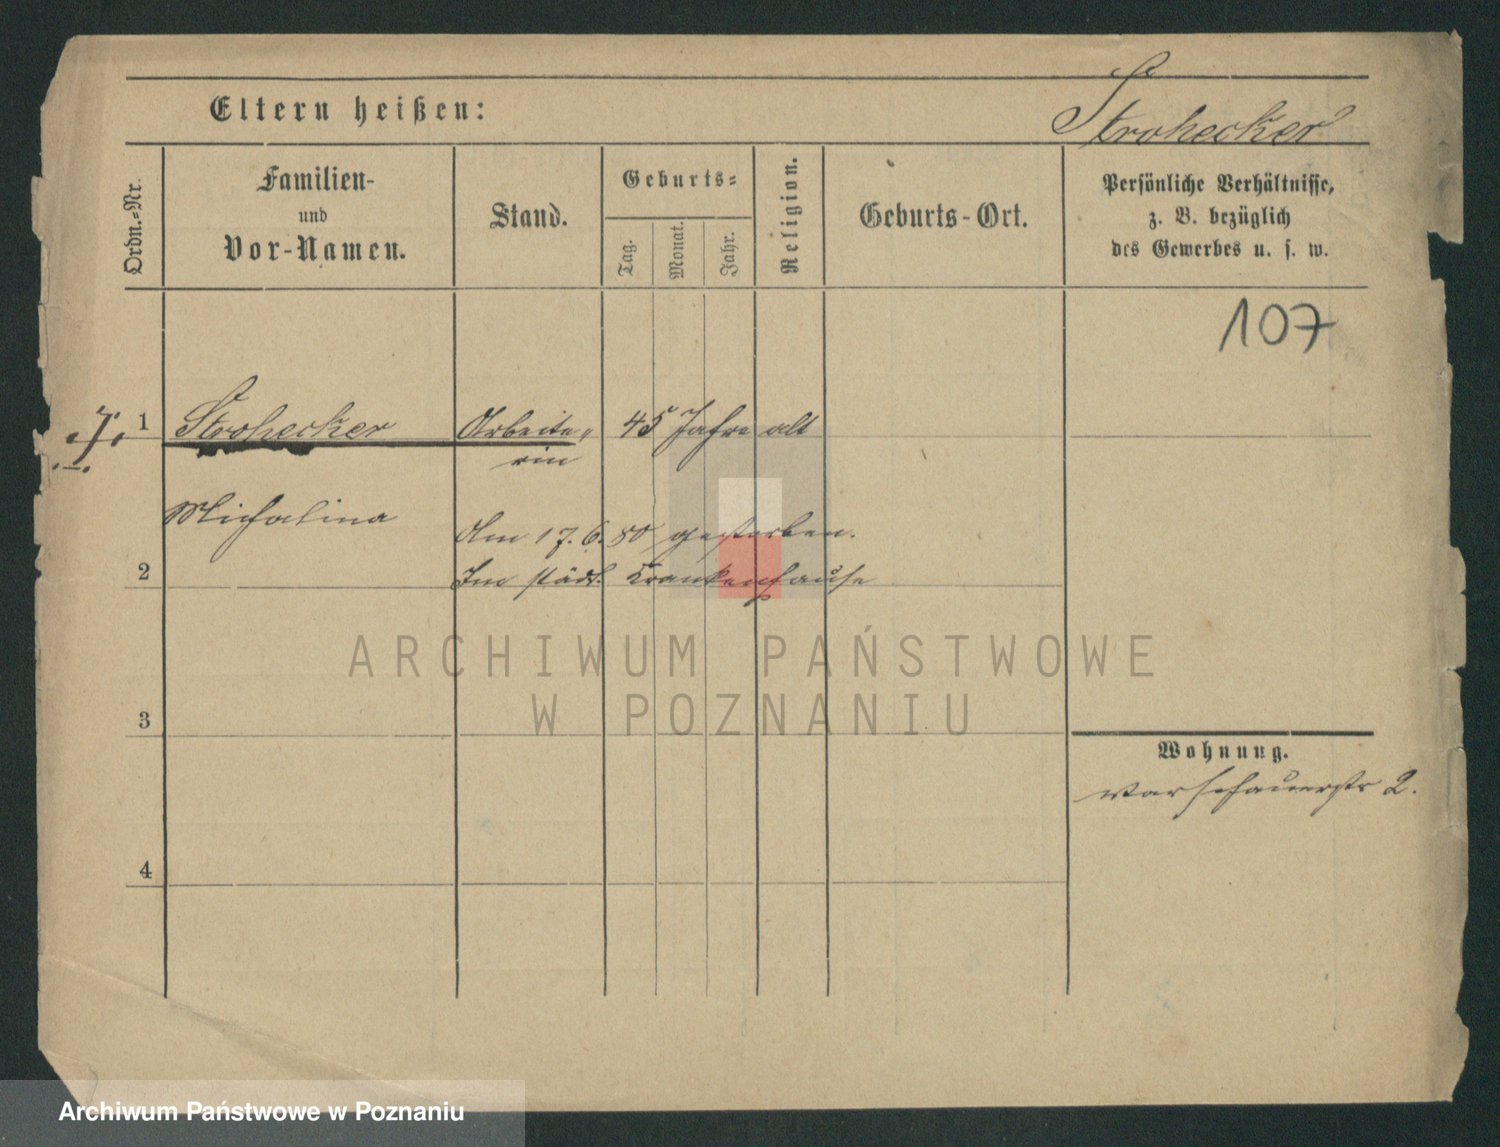 Eltern heißen:
Strohecker
Ordn.=Nr.
Familien-
und
Vor-Namen.
Stand.
Geburts=
Tag.
Monat.
Jahr.
Religion.
Geburts-Ort.
Persönliche Verhältnisse,
z. B. bezüglich
des Gewerbes u. s. w.
107
1
Strohecker
Arbeite„
45 Jahre alt
rin
Michalina
Am 17. 6. 80 gestorben.
2
Im städt. Krankenhause
ARCHIWUM PAŃSTWOWE
W POZNANIU
3
Wohnung.
Warschauerstr 2.
4
Archiwum Państwowe w Poznaniu